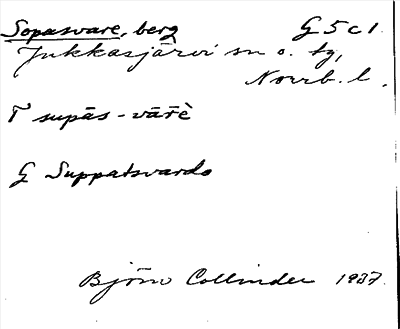 Sopasvare, berg G 5 c 1
Jukkasjärvi sn o. tg,
Norrb. l.
T supās-vārè
G Suppatsvardo
Björn Collinder 1937.